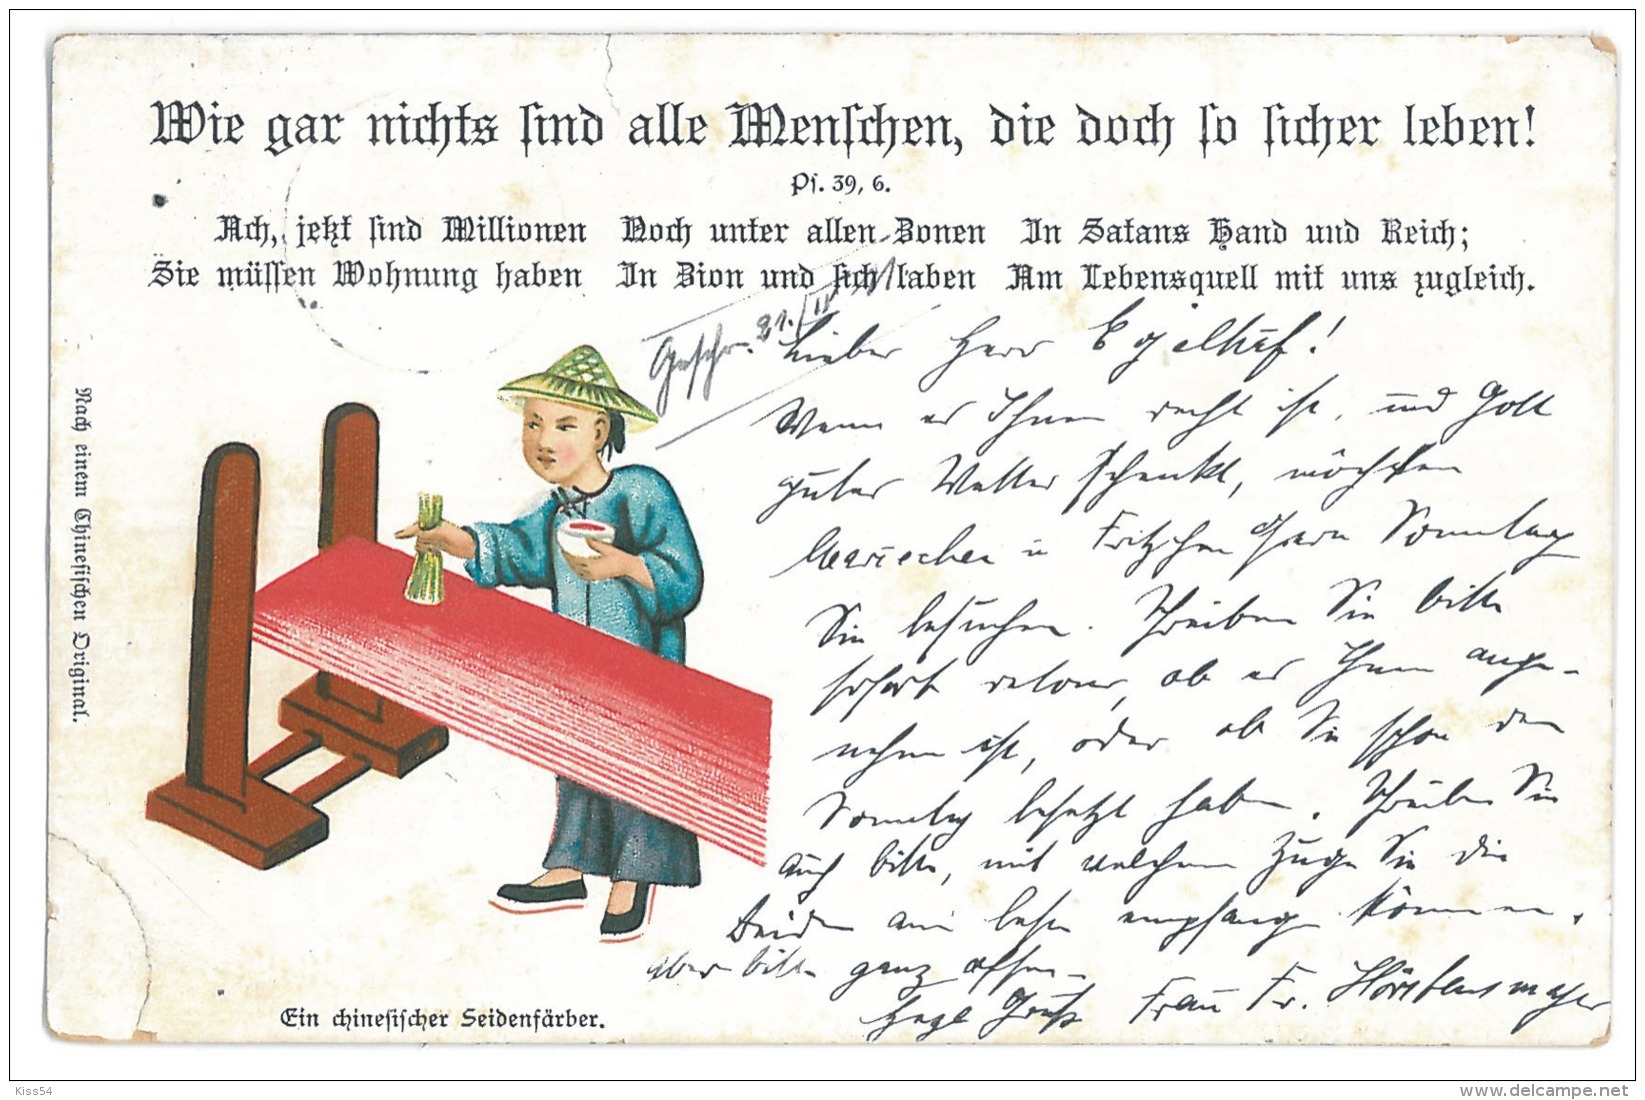 Wie gar nichts sind alle Menschen, die doch so sicher leben!
Ps. 39, 6.
Ach, jetzt sind Millionen Noch unter allen Zonen In Satans Hand und Reich;
Sie müssen Wohnung haben In Zion und sich laben Am Lebensquell mit uns zugleich.
Geschr. 21./II
Lieber Herr Egelhuf!
Wenn es Ihnen recht ist, und Gott
gutes Wetter schenkt, möchten
u Fritzchen gern Sonntag
Sie besuchen. Schreiben Sie bitte
sofort retour, ob es Ihnen ange-
nehm ist, oder ob Sie schon den
Sonntag besetzt haben. Schreiben Sie
auch bitte, mit welchem Zuge Sie die
Beiden am besten empfangen können,
aber bitte ganz offen.
Herzl Gruß Frau Fr.
Nach einem Chinesischen Original.
Ein chinesischer Seidenfärber.
Kiss54
delcampe.net